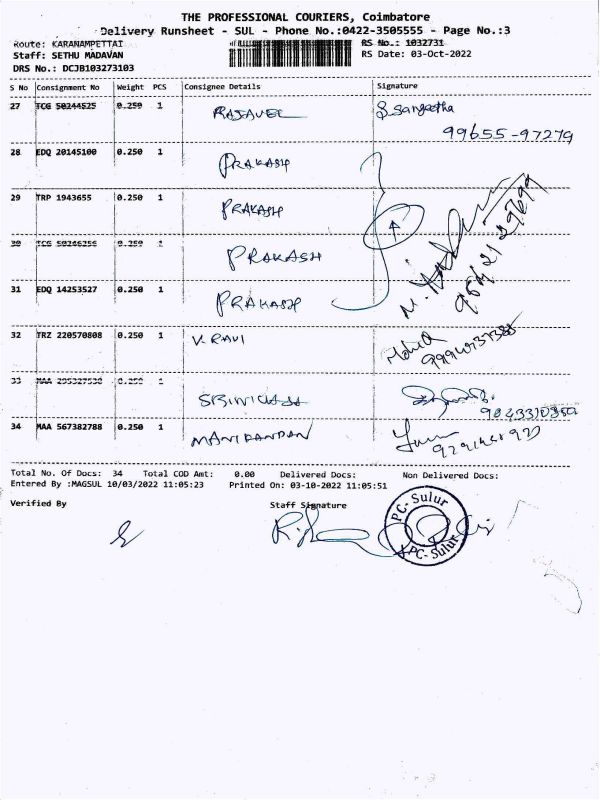 THE PROFESSIONAL COURIERS, Coimbatore
Delivery Runsheet - SUL - Phone No.:0422-3505555 - Page No.:3
Route: KARANAMPETTAI RS No.: 1032731
Staff: SETHU MADAVAN RS Date: 03-Oct-2022
DRS No.: DCJB103273103
S No Consignment No Weight PCS Consignee Details Signature
27 TCG 50244525 0.250 1 RAJAVEL S. Sangeetha
99655-97279
28 EDQ 20145100 0.250 1 PRAKASH
29 TRP 1943655 0.250 1 PRAKASH
30 TCG 50246256 0.250 1 PRAKASH
31 EDQ 14253527 0.250 1 PRAKASH
32 TRZ 220570808 0.250 1 V. RAVI
33 MAA 0.250 1 SRINIVASA
34 MAA 567382788 0.250 1 MANIKANDAN
Total No. Of Docs: 34 Total COD Amt: 0.00 Delivered Docs: Non Delivered Docs:
Entered By :MAGSUL 10/03/2022 11:05:23 Printed On: 03-10-2022 11:05:51
Verified By Staff Signature
PC-Sulur
PC-Sulur